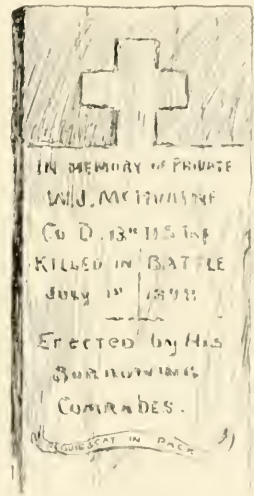 IN MEMORY OF PRIVATE
W.J.
Co D. 13th U.S. Inf
KILLED IN BATTLE
JULY 1st 1898
Erected by His
COMRADES.
REQUIESCAT IN PACE